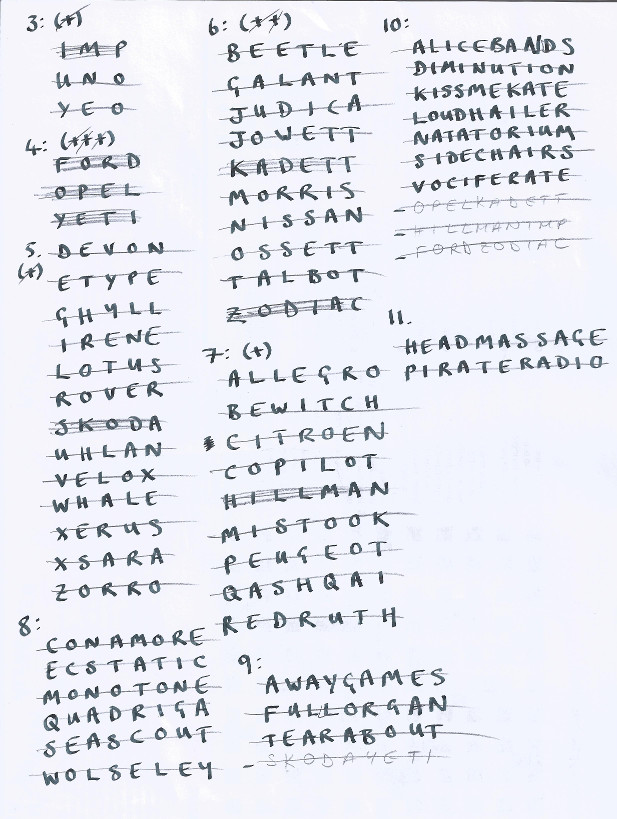 3: (*)
IMP
UNO
YEO
4: (***)
FORD
OPEL
YETI
5. DEVON
(*) ETYPE
GHYLL
IRENE
LOTUS
ROVER
SKODA
UHLAN
VELOX
WHALE
XERUS
XSARA
ZORRO
8:
CONAMORE
ECSTATIC
MONOTONE
QUADRIGA
SEASCOUT
WOLSELEY
6: (**)
BEETLE
GALANT
JUDICA
JOWETT
KADETT
MORRIS
NISSAN
OSSETT
TALBOT
ZODIAC
7: (*)
ALLEGRO
BEWITCH
CITROEN
COPILOT
HILLMAN
MISTOOK
PEUGEOT
QASHQAI
REDRUTH
9:
AWAYGAMES
FULLORGAN
TEARABOUT
- SKODAYETI
10:
ALICEBANDS
DIMINUTION
KISSMEKATE
LOUDHAILER
NATATORIUM
SIDECHAIRS
VOCIFERATE
- OPELKADETT
- HILLMANIMP
- FORDZODIAC
11.
HEADMASSAGE
PIRATERADIO